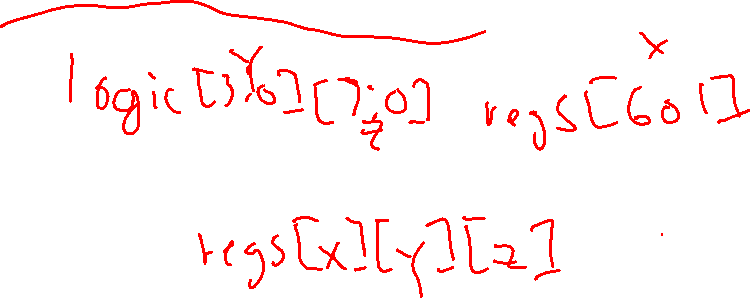 x
logic[3:0][7:0] regs[601]
y
z
regs[x][y][z]